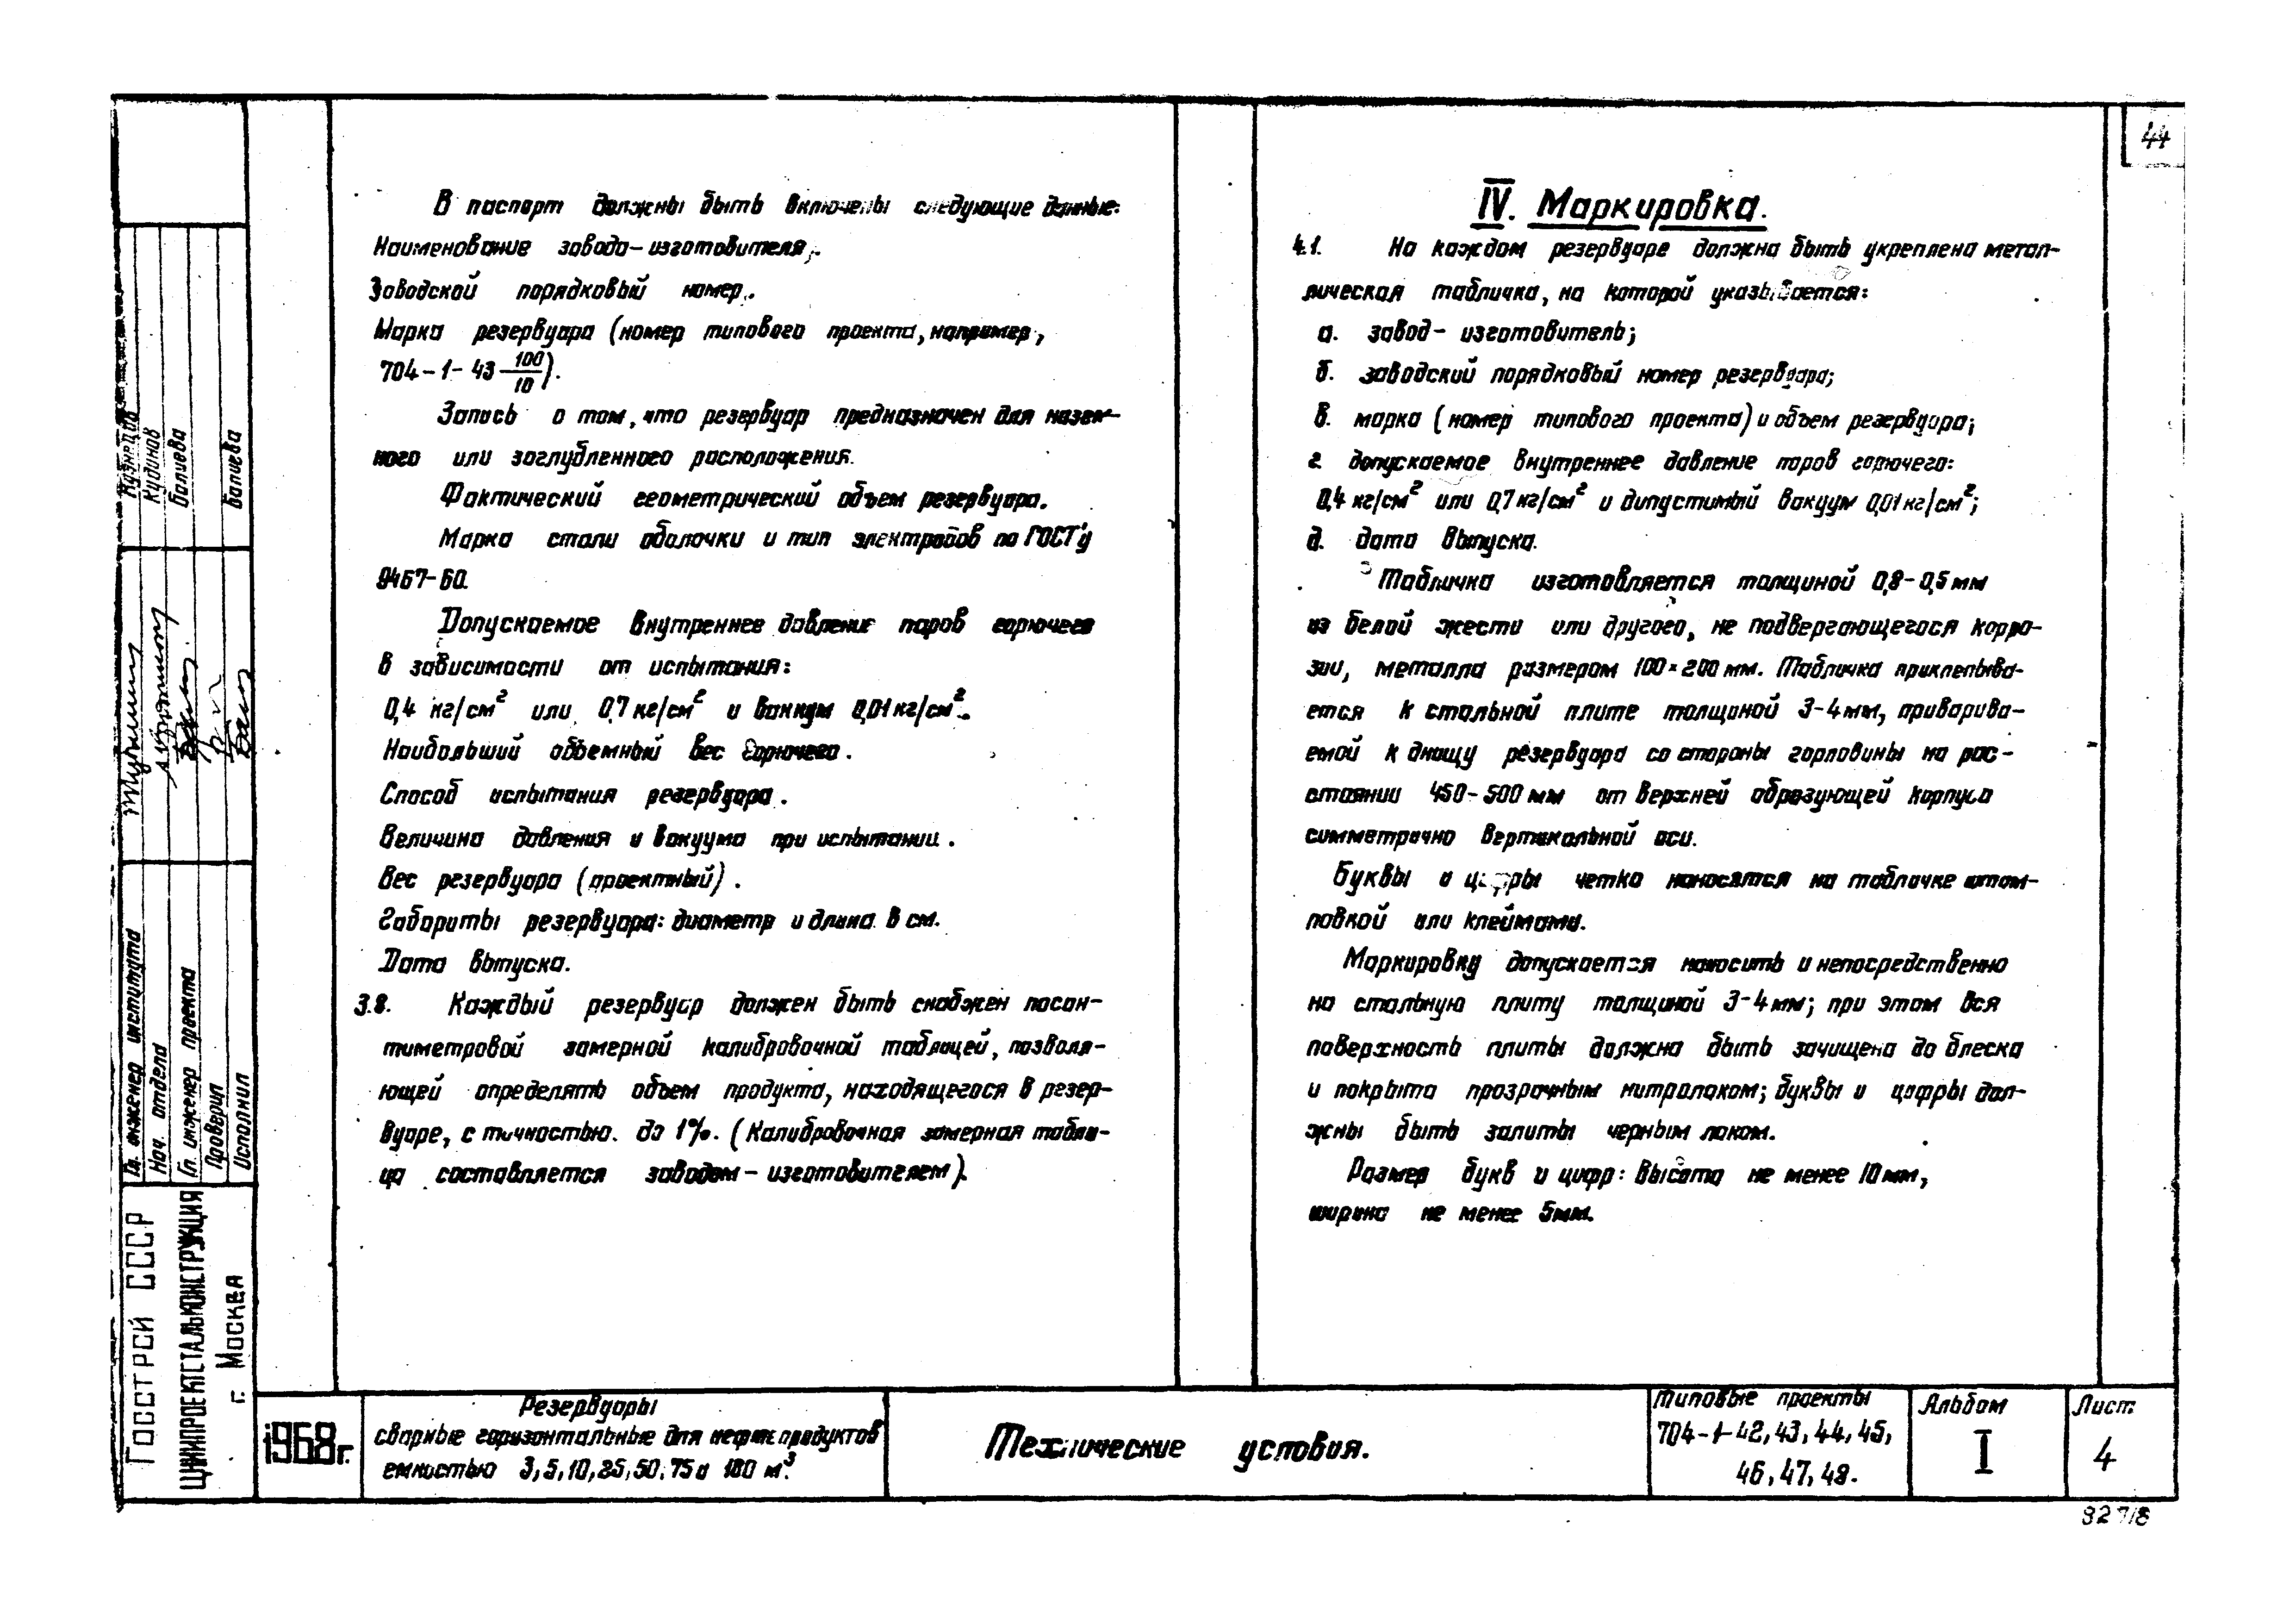 44
В паспорт должны быть включены следующие данные:
Наименование завода-изготовителя;.
Заводской порядковый номер.
Марка резервуара (номер типового проекта, например,
704-1-43 100/10).
Запись о том, что резервуар предназначен для назем-
ного или заглубленного расположения.
Фактический геометрический объем резервуара.
Марка стали оболочки и тип электродов по ГОСТ'у
9467-60.
Допускаемое внутреннее давление паров горючего
в зависимости от испытания:
0,4 кг/см² или 0,7 кг/см² и вакуум 0,01 кг/см².
Наибольший объемный вес горючего.
Способ испытания резервуара.
Величина давления и вакуума при испытании.
Вес резервуара (проектный).
Габариты резервуара: диаметр и длина в см.
Дата выпуска.
3.8. Каждый резервуар должен быть снабжен посан-
тиметровой замерной калибровочной таблицей, позволя-
ющей определять объем продукта, находящегося в резер-
вуаре, с точностью до 1%. (Калибровочная замерная табли-
ца составляется заводом-изготовителем).
IV. Маркировка.
4.1. На каждом резервуаре должна быть укреплена метал-
лическая табличка, на которой указывается:
а. завод-изготовитель;
б. заводской порядковый номер резервуара;
в. марка (номер типового проекта) и объем резервуара;
г. допускаемое внутреннее давление паров горючего:
0,4 кг/см² или 0,7 кг/см² и допустимый вакуум 0,01 кг/см²;
д. дата выпуска.
Табличка изготовляется толщиной 0,8-0,5 мм
из белой жести или другого, не подвергающегося корро-
зии, металла размером 100×200 мм. Табличка приклепыва-
ется к стальной плите толщиной 3-4 мм, приварива-
емой к днищу резервуара со стороны горловины на рас-
стоянии 450-500 мм от верхней образующей корпуса
симметрично вертикальной оси.
Буквы и цифры четко наносятся на табличке штам-
повкой или клеймами.
Маркировку допускается наносить и непосредственно
на стальную плиту толщиной 3-4 мм; при этом вся
поверхность плиты должна быть зачищена до блеска
и покрыта прозрачным нитролаком; буквы и цифры дол-
жны быть залиты черным лаком.
Размер букв и цифр: высота не менее 10 мм,
ширина не менее 5 мм.
Гл. инженер института Кузнецов
Нач. отдела Кудинов
Гл. инженер проекта Балиева
Проверил
Исполнил Балиева
Госстрой СССР
ЦНИИПРОЕКТСТАЛЬКОНСТРУКЦИЯ
г. Москва
1968 г.
Резервуары
сварные горизонтальные для нефтепродуктов
емкостью 3, 5, 10, 25, 50, 75 и 100 м³.
Технические условия.
Типовые проекты
704-1-42, 43, 44, 45,
46, 47, 48.
Альбом
I
Лист
4